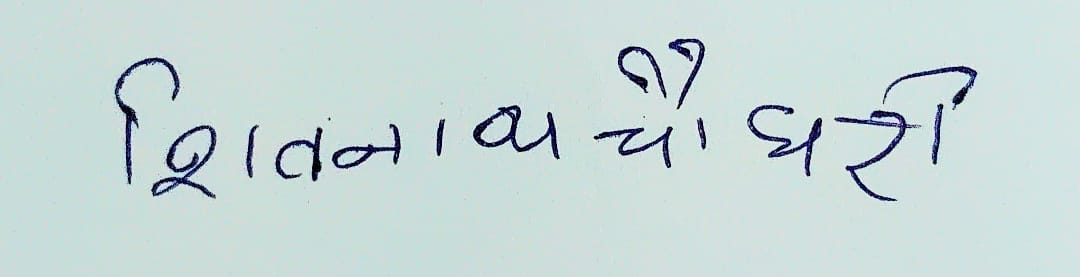 शिवनाथ चौधरी